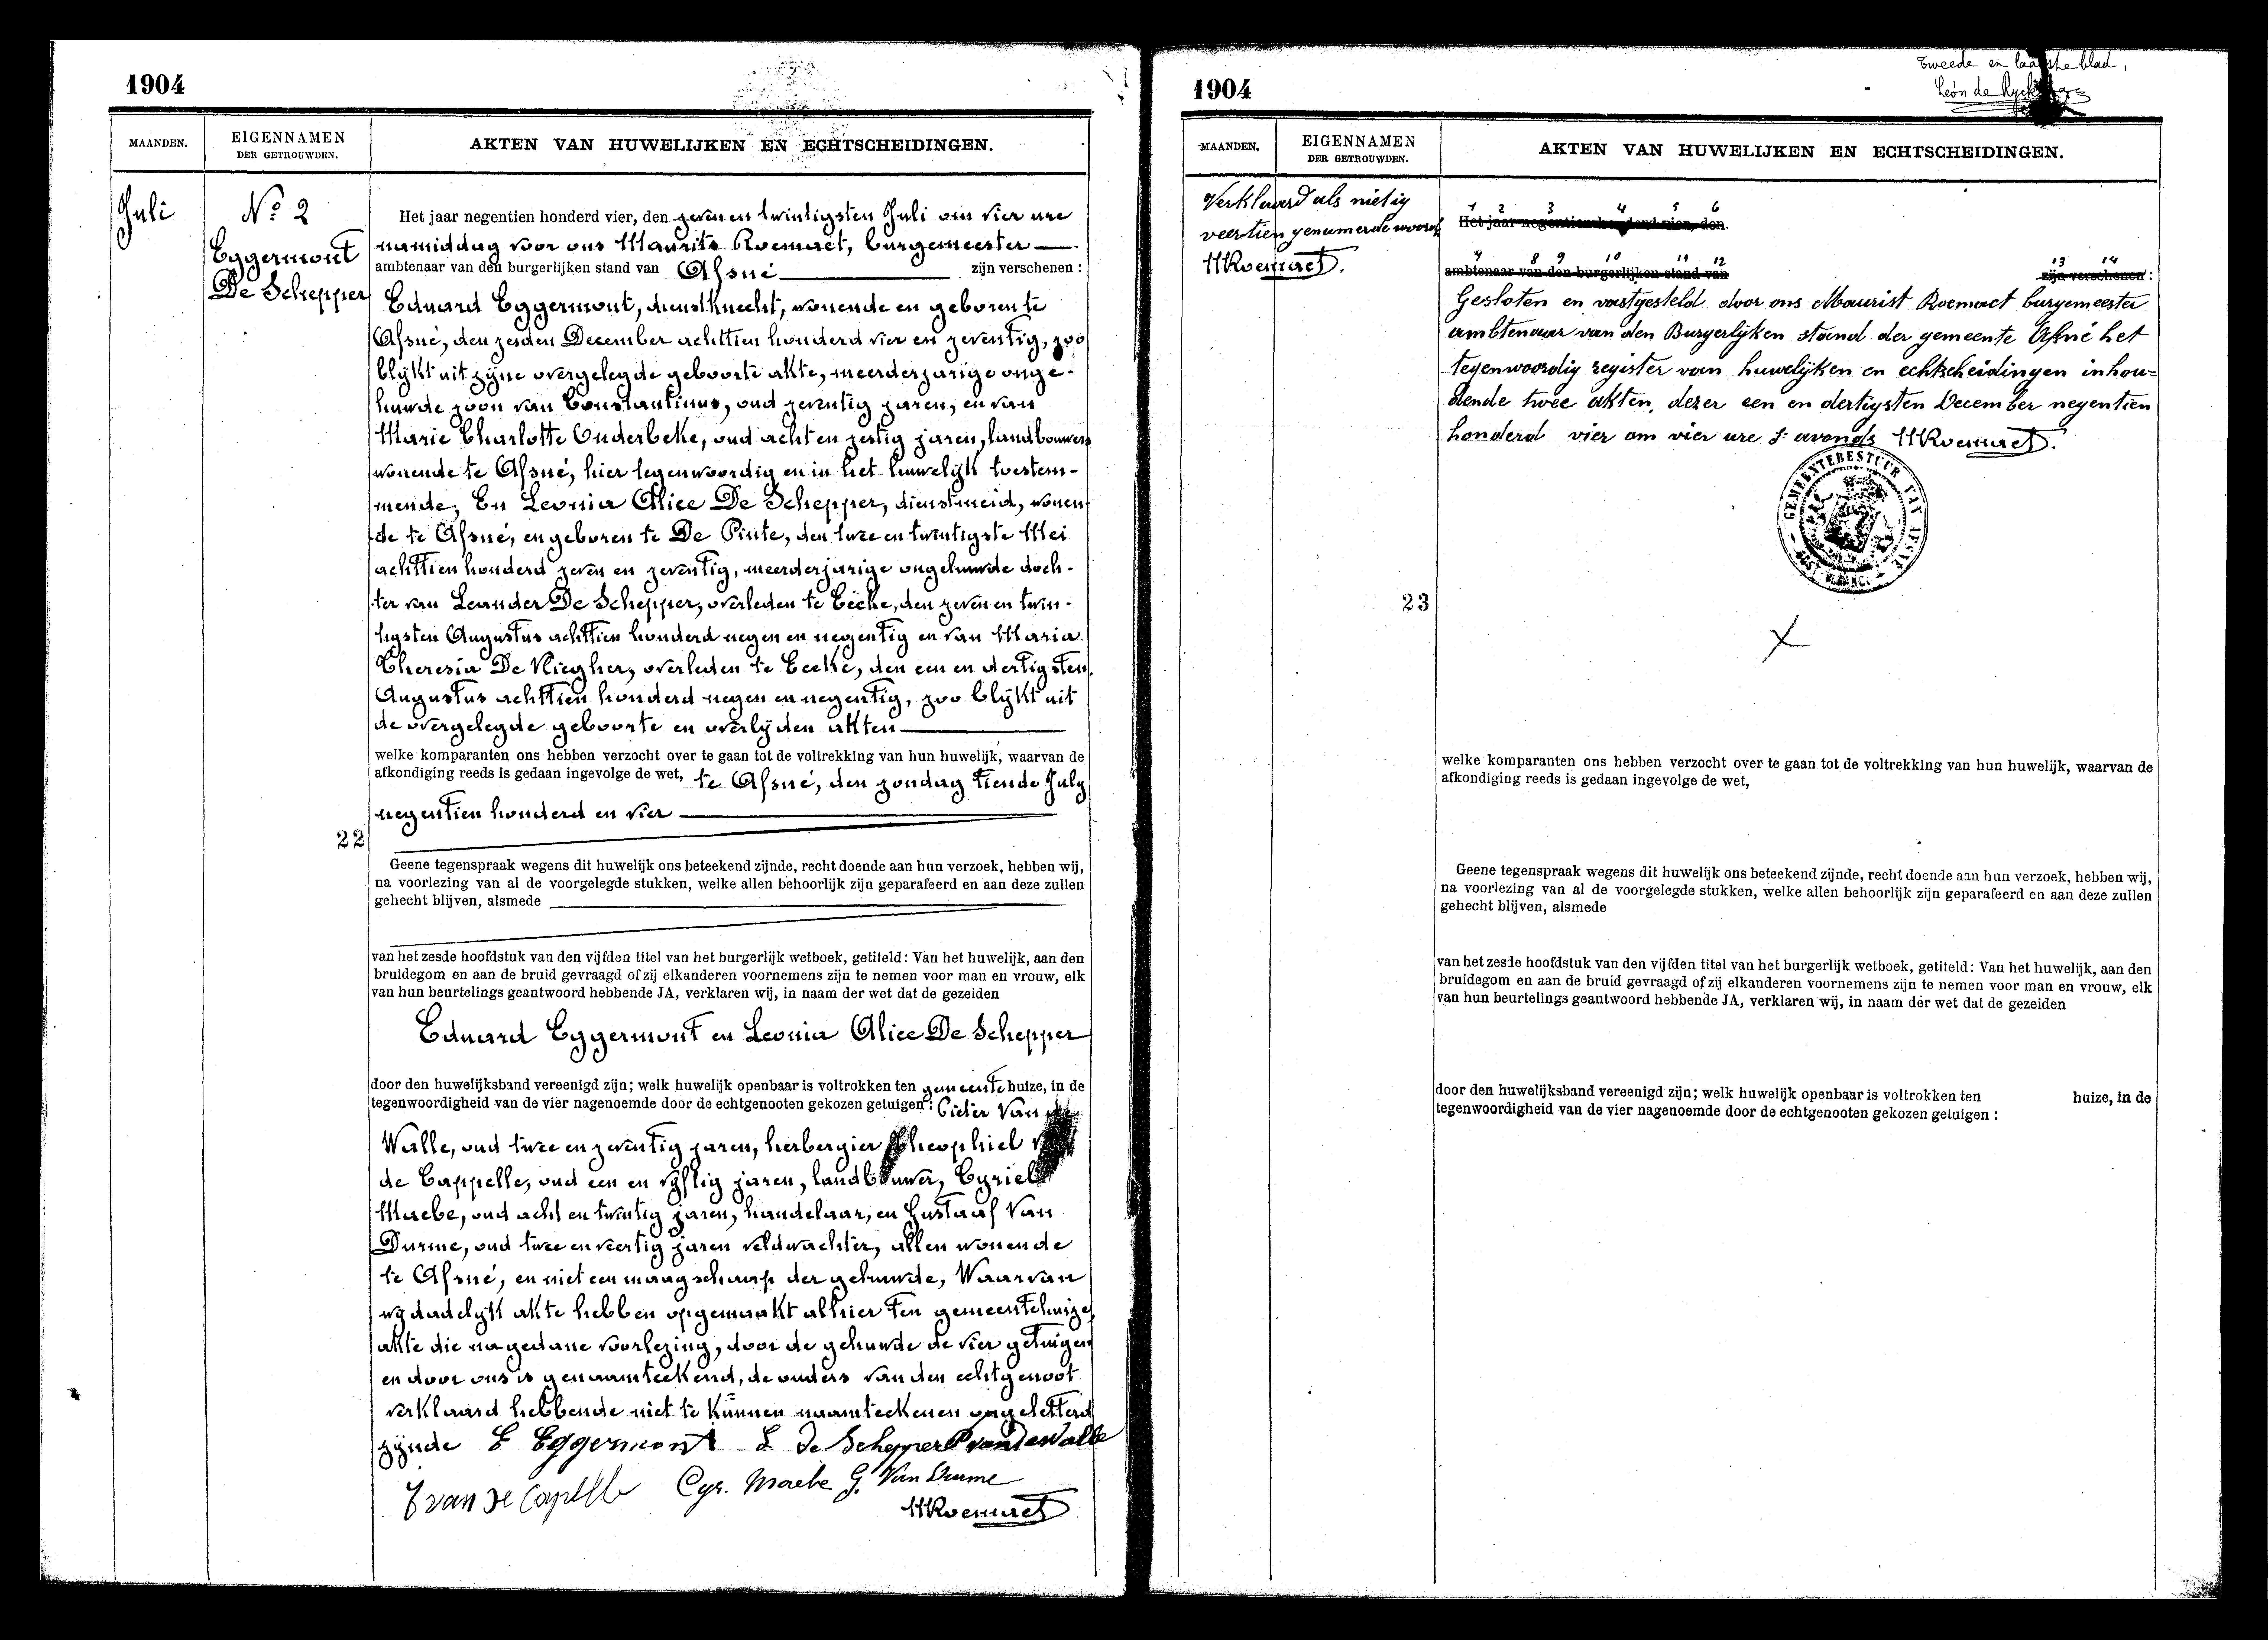 1904
MAANDEN.
EIGENNAMEN
DER GETROUWDEN.
AKTEN VAN HUWELIJKEN EN ECHTSCHEIDINGEN.
Juli
No 2
Eggermont
De Schepper
Het jaar negentien honderd vier, den zeven en twintigsten Juli om vier ure
namiddag voor ons Maurits Roemaet, burgemeester
ambtenaar van den burgerlijken stand van Afsné zijn verschenen :
Eduard Eggermont, dienstknecht, wonende en geboren te
Afsné, den zesden December achttien honderd vier en zeventig, zoo
blijkt uit zijne overgelegde geboorte akte, meerderjarige onge-
huwde zoon van Constantinus, oud zeventig jaren, en van
Marie Charlotte Onderbeke, oud acht en zestig jaren, landbouwers
wonende te Afsné, hier tegenwoordig en in het huwelijk toestem-
mende, En Leonia Alice De Schepper, dienstmeid, wonen-
de te Afsné, en geboren te De Pinte, den twee en twintigste Mei
achttien honderd zeven en zeventig, meerderjarige ongehuwde doch-
ter van Leander De Schepper, overleden te Eecke, den zeven en twin-
tigsten Augustus achttien honderd negen en negentig en van Maria
Theresia De Vliegher, overleden te Eecke, den een en dertigsten
Augustus achttien honderd negen en negentig, zoo blijkt uit
de overgelegde geboorte en overlijden akten
welke komparanten ons hebben verzocht over te gaan tot de voltrekking van hun huwelijk, waarvan de
afkondiging reeds is gedaan ingevolge de wet, te Afsné, den zondag tiende July
negentien honderd en vier
22
Geene tegenspraak wegens dit huwelijk ons beteekend zijnde, recht doende aan hun verzoek, hebben wij,
na voorlezing van al de voorgelegde stukken, welke allen behoorlijk zijn geparafeerd en aan deze zullen
gehecht blijven, alsmede
van het zesde hoofdstuk van den vijfden titel van het burgerlijk wetboek, getiteld: Van het huwelijk, aan den
bruidegom en aan de bruid gevraagd of zij elkanderen voornemens zijn te nemen voor man en vrouw, elk
van hun beurtelings geantwoord hebbende JA, verklaren wij, in naam der wet dat de gezeiden
Eduard Eggermont en Leonia Alice De Schepper
door den huwelijksband vereenigd zijn; welk huwelijk openbaar is voltrokken ten gemeente huize, in de
tegenwoordigheid van de vier nagenoemde door de echtgenooten gekozen getuigen : Pieter Van de
Walle, oud twee en zeventig jaren, herbergier Theophiel
de Cappelle, oud een en vijftig jaren, landbouwer, Cyriel
Maebe, oud acht en twintig jaren, handelaar, en Gustaaf Van
Durme, oud twee en veertig jaren veldwachter, allen wonende
te Afsné, en niet een maagschap der gehuwde, Waarvan
wij dadelijk akte hebben opgemaakt alhier ten gemeentehuize
akte die na gedane voorlezing, door de gehuwde de vier getuigen
en door ons is genaamteekend, de ouders van den echtgenoot
verklaard hebbende niet te kunnen naamteekenen ongeletterd
zijnde E Eggermont L De Schepper P vandewalle
T van De Capelle Cyr. Maebe G. Van Durme
MRoemaet
1904
Tweede en laatste blad,
Léon de
MAANDEN.
EIGENNAMEN
DER GETROUWDEN.
AKTEN VAN HUWELIJKEN EN ECHTSCHEIDINGEN.
Verklaard als nietig
veertien genumerde woorden
MRoemaet.
1 2 3 4 5 6
Het jaar negentien honderd vier, den
7 8 9 10 11 12 13 14
ambtenaar van den burgerlijken stand van zijn verschenen :
Gesloten en vastgesteld door ons Maurist Roemaet burgemeester
ambtenaar van den Burgerlijken stand der gemeente Afsné het
tegenwoordig register van huwelijken en echtscheidingen inhou=
dende twee akten, dezer een en dertigsten December negentien
honderd vier om vier ure s' avonds MRoemaet.
GEMEENTEBESTUUR VAN AFSNÉ
23
welke komparanten ons hebben verzocht over te gaan tot de voltrekking van hun huwelijk, waarvan de
afkondiging reeds is gedaan ingevolge de wet,
Geene tegenspraak wegens dit huwelijk ons beteekend zijnde, recht doende aan hun verzoek, hebben wij,
na voorlezing van al de voorgelegde stukken, welke allen behoorlijk zijn geparafeerd en aan deze zullen
gehecht blijven, alsmede
van het zesde hoofdstuk van den vijfden titel van het burgerlijk wetboek, getiteld: Van het huwelijk, aan den
bruidegom en aan de bruid gevraagd of zij elkanderen voornemens zijn te nemen voor man en vrouw, elk
van hun beurtelings geantwoord hebbende JA, verklaren wij, in naam der wet dat de gezeiden
door den huwelijksband vereenigd zijn; welk huwelijk openbaar is voltrokken ten huize, in de
tegenwoordigheid van de vier nagenoemde door de echtgenooten gekozen getuigen :